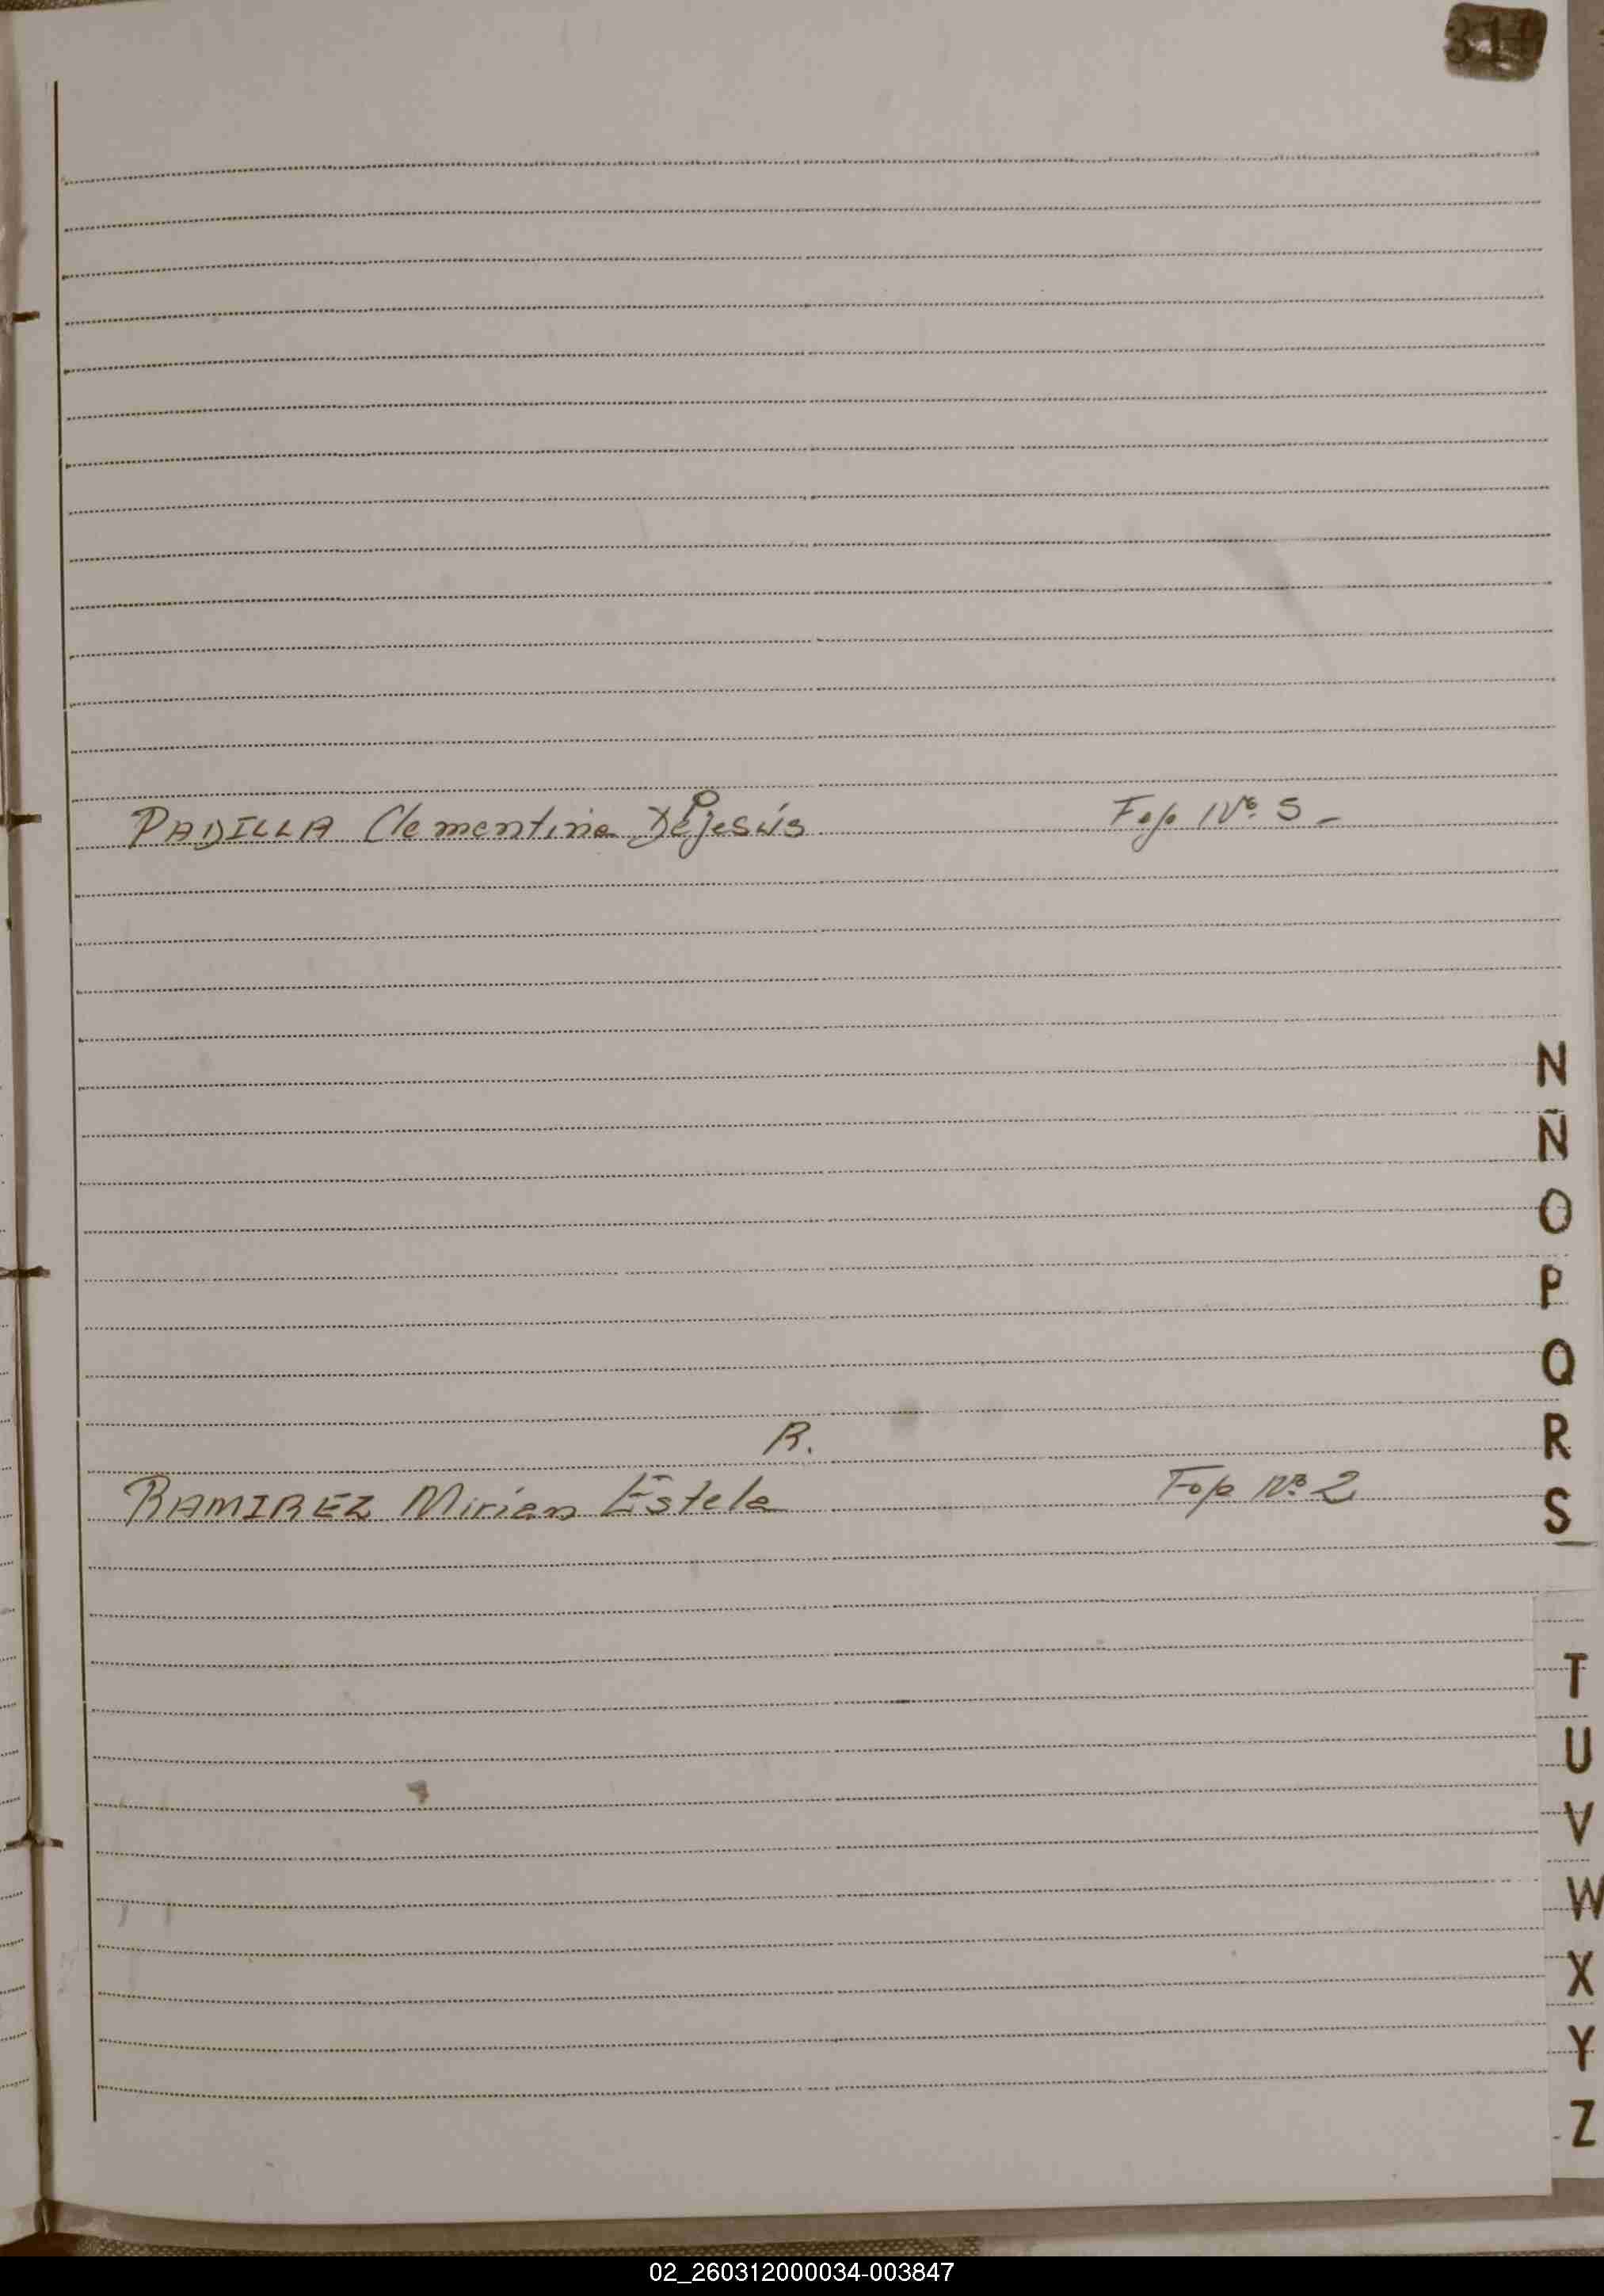 PADILLA Clementina Dejesús Fojo Nº 5 -
N
Ñ
O
P
Q
R
R.
RAMIREZ Mirian Estela Fojo Nº 2
S
T
U
V
W
X
Y
Z
02_260312000034-003847